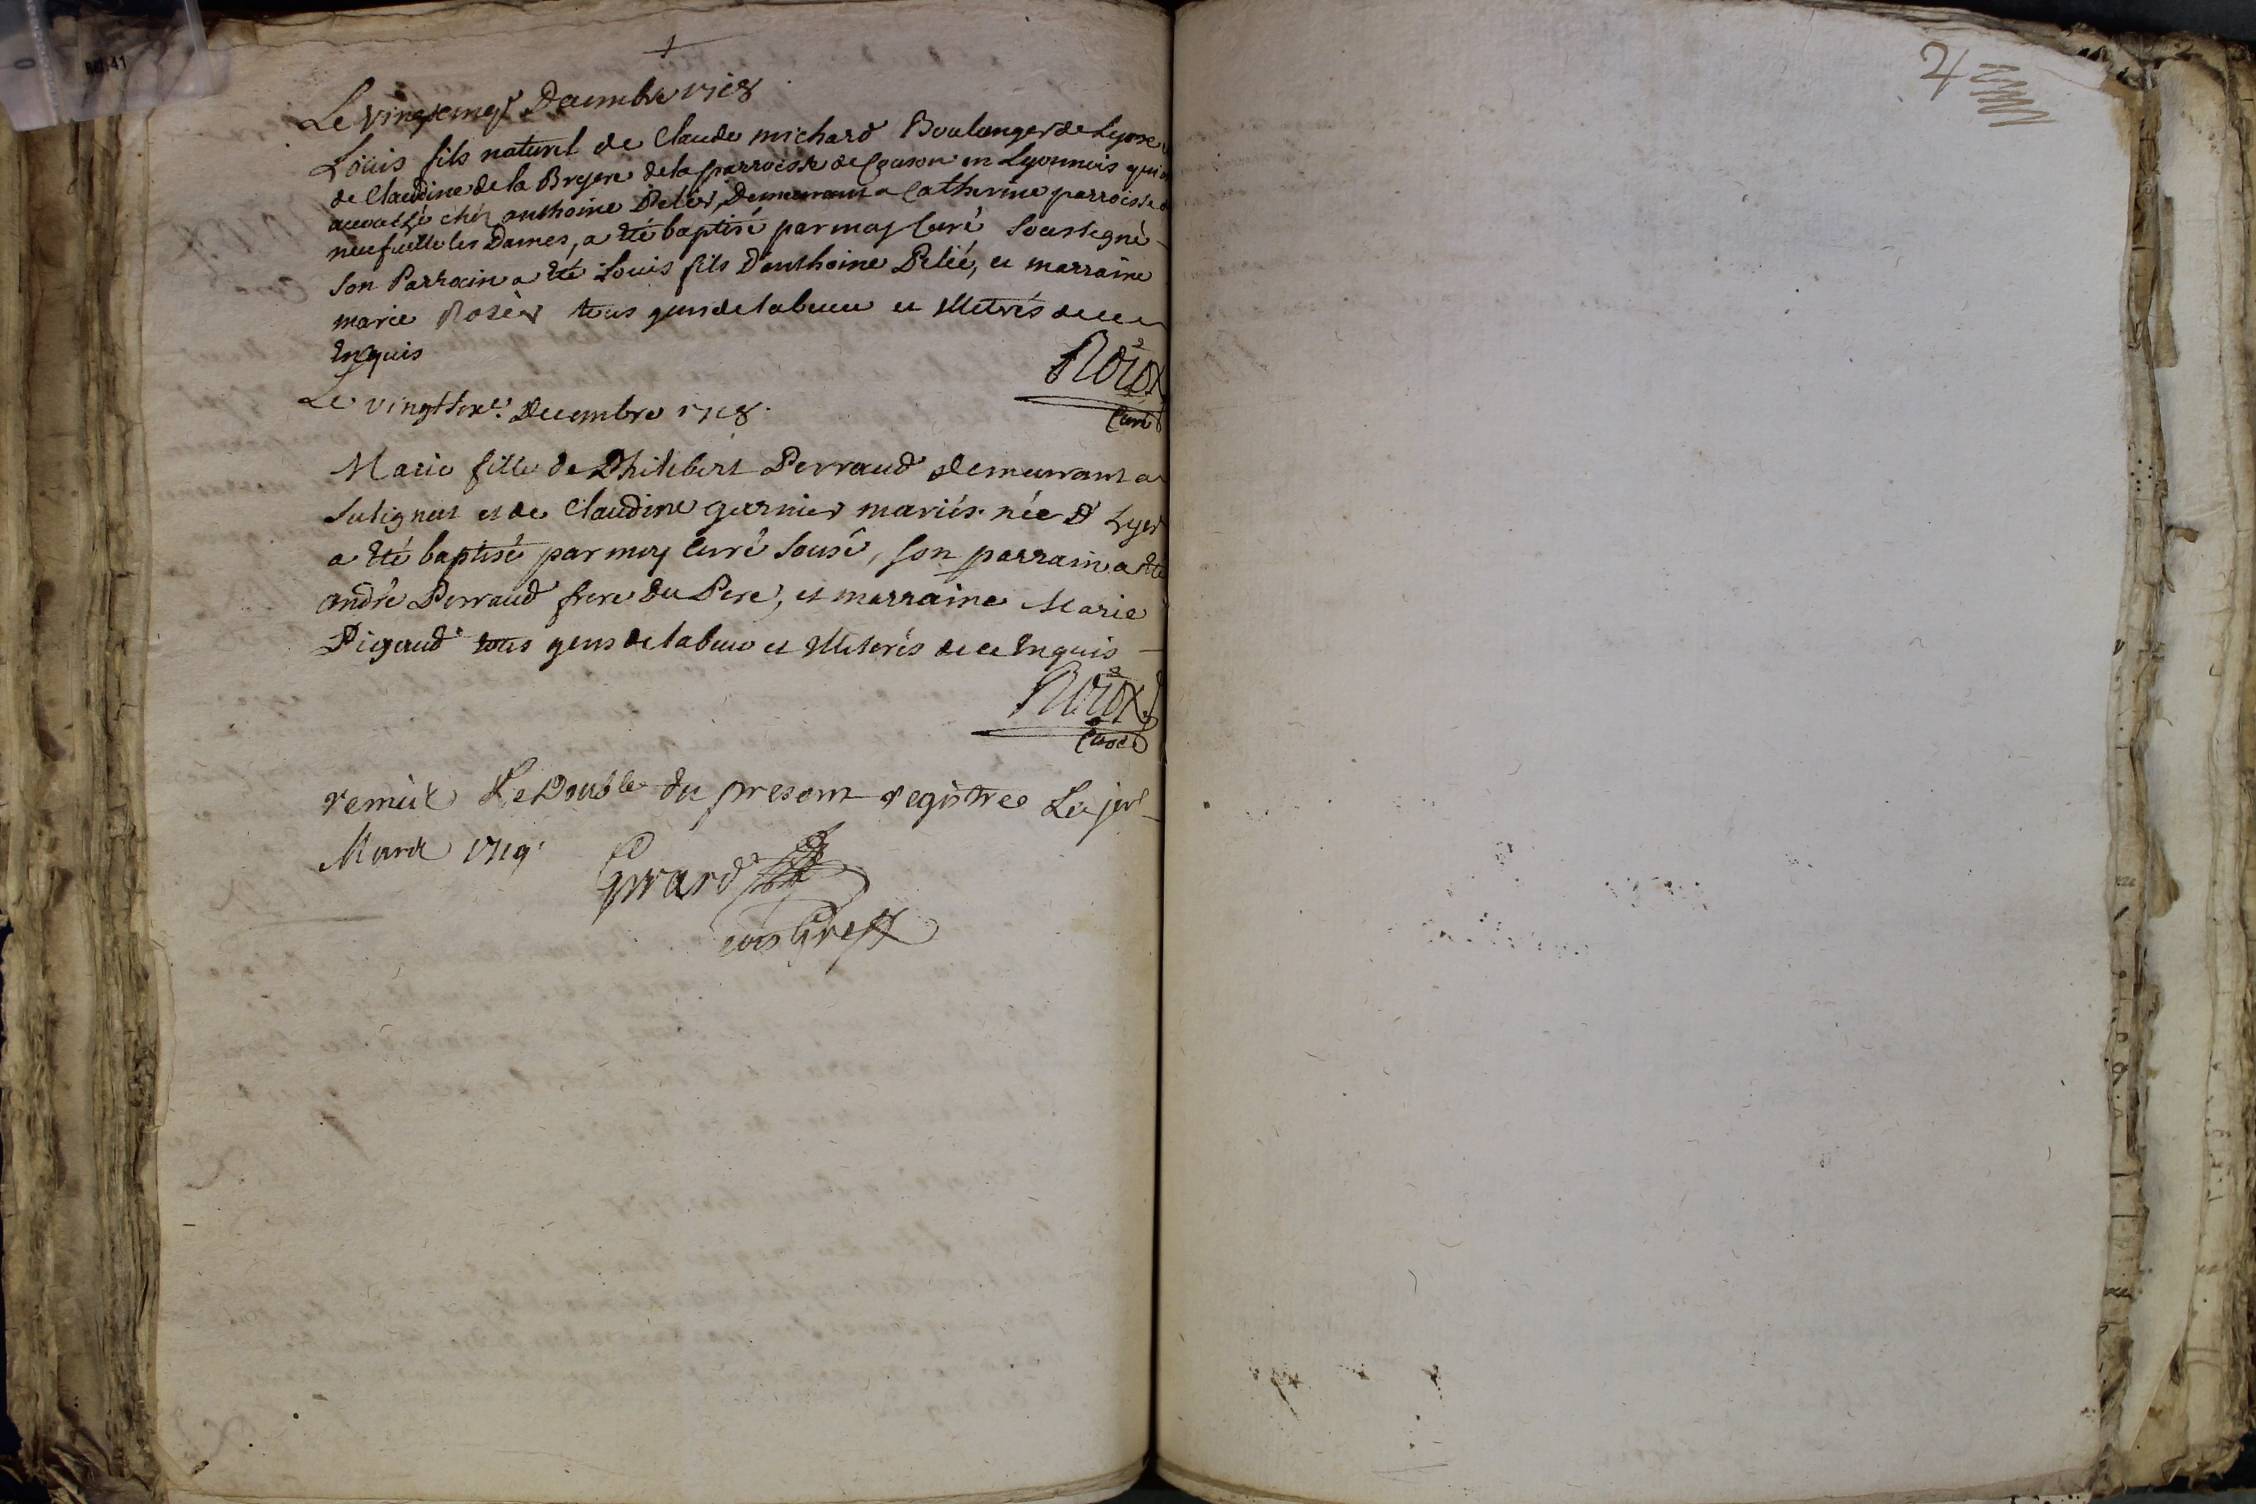 Le vingt cinq Decembre 1718
Louis fils naturel de Claude michard Boulanger de Lyon
de Claudine de la Bryere de la parroisse de Couson en Lyonnois qui
accouché chéz anthoine Peleér Demeurant a Catherine parroisse
neufuille les Dames, a été baptisé par moy Curé Soussigné
Son Parrain a été Louis fils D'anthoine Pelié, et marraine
marie Rosèr tous gens de labeur et illetrés de ce
Enquis
Curé
Le vingt sixe. Decembre 1718.
Marie fille de Philibert Perraud demeurant a
Sulignat et de Claudine garnier mariés née D' hyer
a été baptisé par moy Curé Sousé, son parrain a été
andré Perraud frere du Pere, et marraine Marie
Pigaud tous gens de labeur et illiterés de ce Enquis
Curé
remis Le Double du present registre Le
Mard 1719.
Girard
Greff